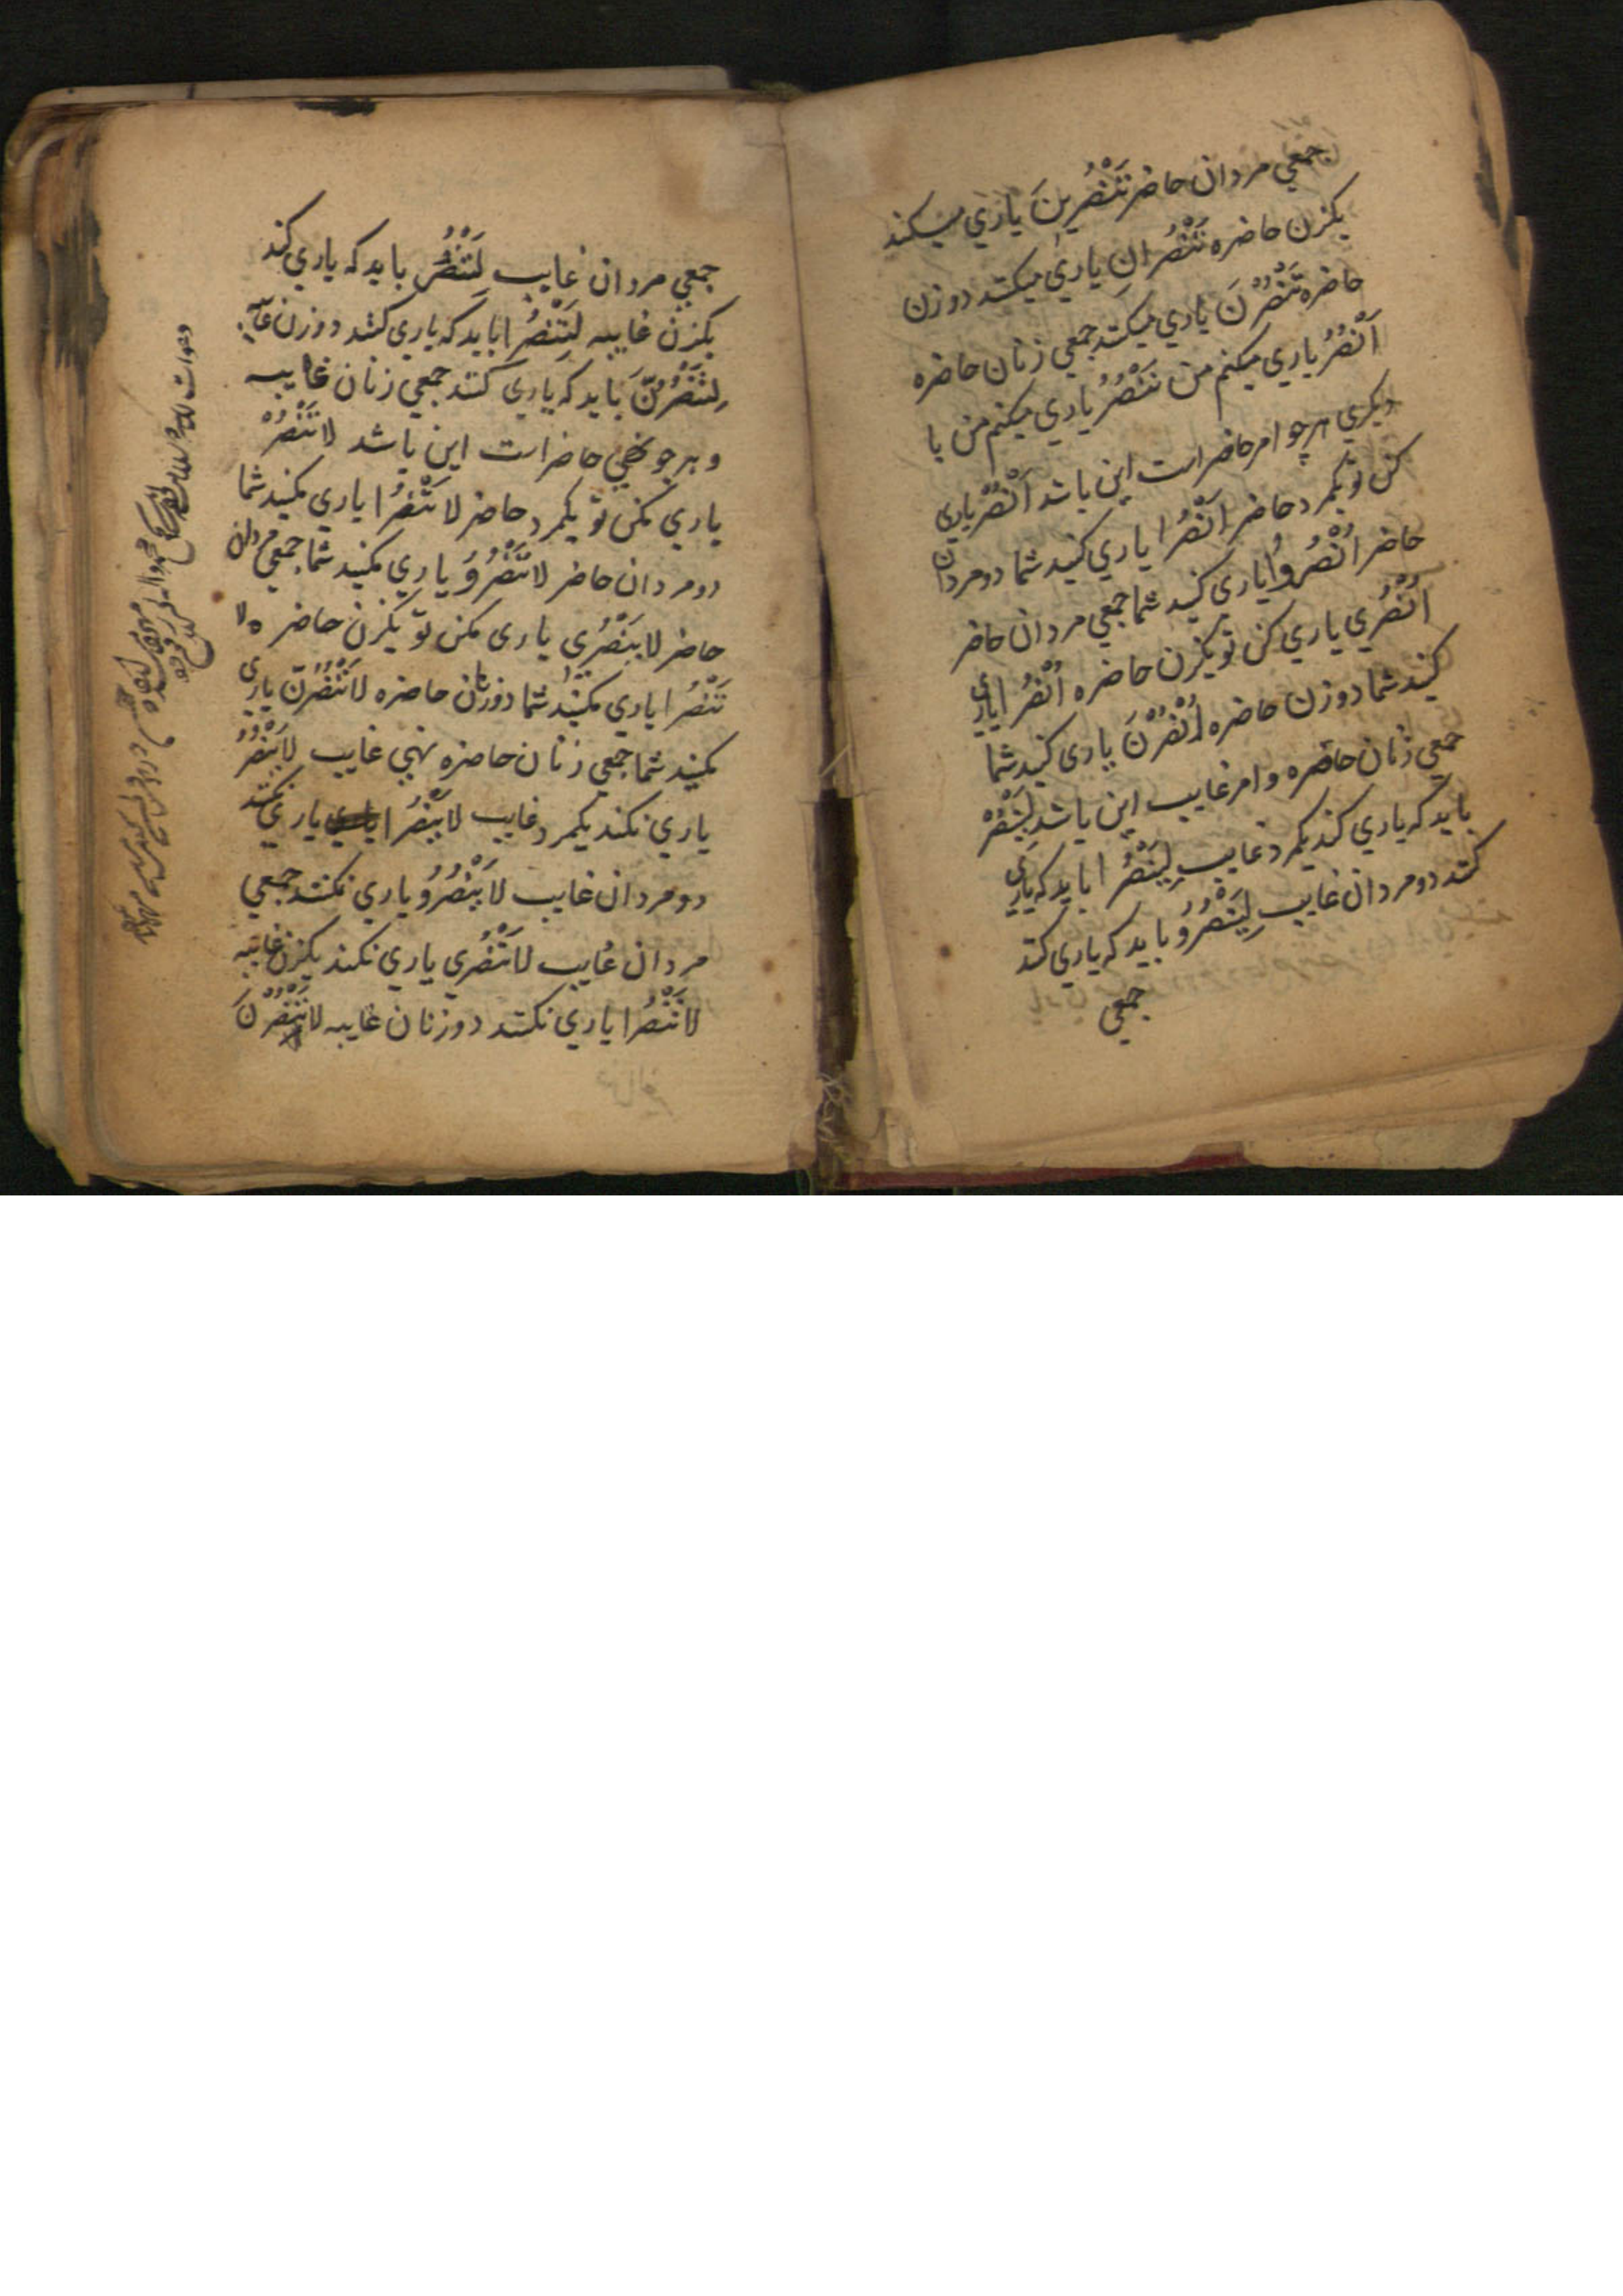 جمعي مردان حاضر تَنْصُرِينَ ياري ميكند
يكزن حاضره تَنْصُرانِ ياري ميكنند دو زن
حاضره تَنْصُرْنَ ياري ميكنند جمعي زنان حاضره
اَنْصُرُ ياري ميكنم من نَنْصُرُ ياري ميكنم من با
ديكري هرچو امر حاضر است اين باشد اُنْصُرْ ياري
كن تو يكمرد حاضر اُنْصُرا ياري كنيد شما دو مردان
حاضر اُنْصُرُوا ياري كنيد شما جمعي مردان حاضر
اُنْصُرِي ياري كن تو يكزن حاضره اُنْصُرا ياري
كنيد شما دو زن حاضره اُنْصُرْنَ ياري كنيد شما
جمعي زنان حاضره و امر غايب اين باشد لِيَنْصُرْ
بايد كه ياري كند يكمرد غايب لِيَنْصُرا بايد كه ياري
كنند دو مردان غايب لِيَنْصُرُو بايد كه ياري كنند
جمعي
جمعي مردان غايب لِتَنْصُرْ بايد كه ياري كند
يكزن غايبه لِتَنْصُرا بايد كه ياري كنند دو زن غايبه
لِتَنْصُرْنَّ بايد كه ياري كنند جمعي زنان غايب
و هرچو نهي حاضر است اين باشد لا تَنْصُرْ
ياري مكن تو يكمرد حاضر لا تَنْصُرا ياري مكنيد شما
دو مردان حاضر لا تَنْصُرُو ياري مكنيد شما جمعي مردان
حاضر لا تَنْصُرِي ياري مكن تو يكزن حاضره لا
تَنْصُرا ياري مكنيد شما دو زنان حاضره لا تَنْصُرْنَّ ياري
مكنيد شما جمعي زنان حاضره نهي غايب لا يَنْصُرْ
ياري نكند يكمرد غايب لا يَنْصُرا ياري نكنند
دو مردان غايب لا يَنْصُرُو ياري نكنند جمعي
مردان غايب لا تَنْصُرِي ياري نكند يكزن غايبه
لا تَنْصُرا ياري نكنند دو زنان غايبه لا تَنْصُرْنَ